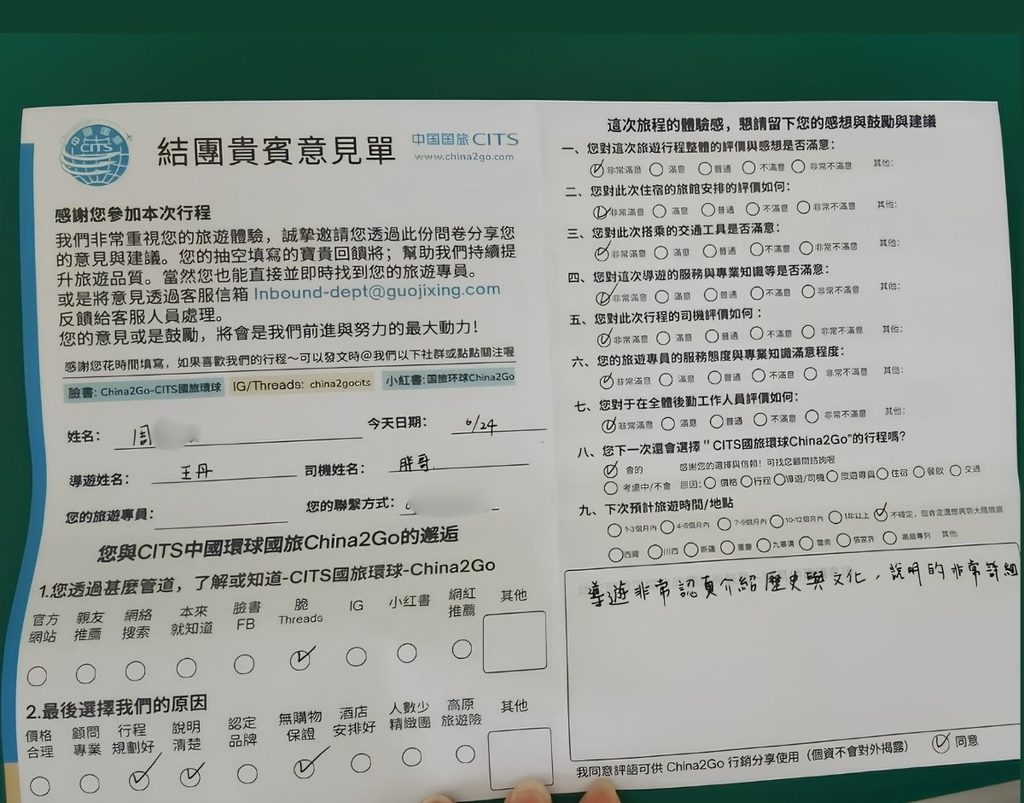 中国国旅
CITS
結團貴賓意見單
中国国旅 CITS
www.china2go.com
感謝您參加本次行程
我們非常重視您的旅遊體驗，誠摯邀請您透過此份問卷分享您
的意見與建議。您的抽空填寫的寶貴回饋將；幫助我們持續提
升旅遊品質。當然您也能直接並即時找到您的旅遊專員。
或是將意見透過客服信箱 Inbound-dept@guojixing.com
反饋給客服人員處理。
您的意見或是鼓勵，將會是我們前進與努力的最大動力！
感謝您花時間填寫，如果喜歡我們的行程～可以發文時@我們以下社群或點點關注喔
臉書: China2Go-CITS國旅環球 IG/Threads: china2gocits 小紅書:国旅环球China2Go
姓名： 周
今天日期： 6/24
導遊姓名： 王丹 司機姓名： 胖哥
您的旅遊專員： 您的聯繫方式：
您與CITS中國環球國旅China2Go的邂逅
1.您透過甚麼管道，了解或知道-CITS國旅環球-China2Go
官方網站 親友推薦 網絡搜索 本來就知道 臉書FB 脆Threads IG 小紅書 網紅推薦 其他
2.最後選擇我們的原因
價格合理 顧問專業 行程規劃好 說明清楚 認定品牌 無購物保證 酒店安排好 人數少精緻團 高原旅遊險 其他
這次旅程的體驗感，懇請留下您的感想與鼓勵與建議
一、您對這次旅遊行程整體的評價與感想是否滿意：
非常滿意 滿意 普通 不滿意 非常不滿意 其他:
二、您對此次住宿的旅館安排的評價如何：
非常滿意 滿意 普通 不滿意 非常不滿意 其他:
三、您對此次搭乘的交通工具是否滿意：
非常滿意 滿意 普通 不滿意 非常不滿意 其他:
四、您對這次導遊的服務與專業知識等是否滿意：
非常滿意 滿意 普通 不滿意 非常不滿意 其他:
五、您對此次行程的司機評價如何：
非常滿意 滿意 普通 不滿意 非常不滿意 其他:
六、您的旅遊專員的服務態度與專業知識滿意程度：
非常滿意 滿意 普通 不滿意 非常不滿意 其他:
七、您對于在全體後勤工作人員評價如何：
非常滿意 滿意 普通 不滿意 非常不滿意 其他:
八、您下一次還會選擇 " CITS國旅環球China2Go"的行程嗎?
會的 感謝您的選擇與信賴! 可找您顧問諮詢喔
考慮中/不會 原因: 價格 行程 導遊/司機 旅遊專員 住宿 餐飲 交通
九、下次預計旅遊時間/地點
1-3個月內 4-6個月內 7-9個月內 10-12個月內 1年以上 不確定，但肯定還想再到大陸旅遊
西藏 川西 新疆 重慶 九寨溝 雲南 張家界 高鐵專列 其他:
導遊非常認真介紹歷史與文化，說明的非常詳細
我同意評語可供 China2Go 行銷分享使用（個資不會對外揭露） 同意